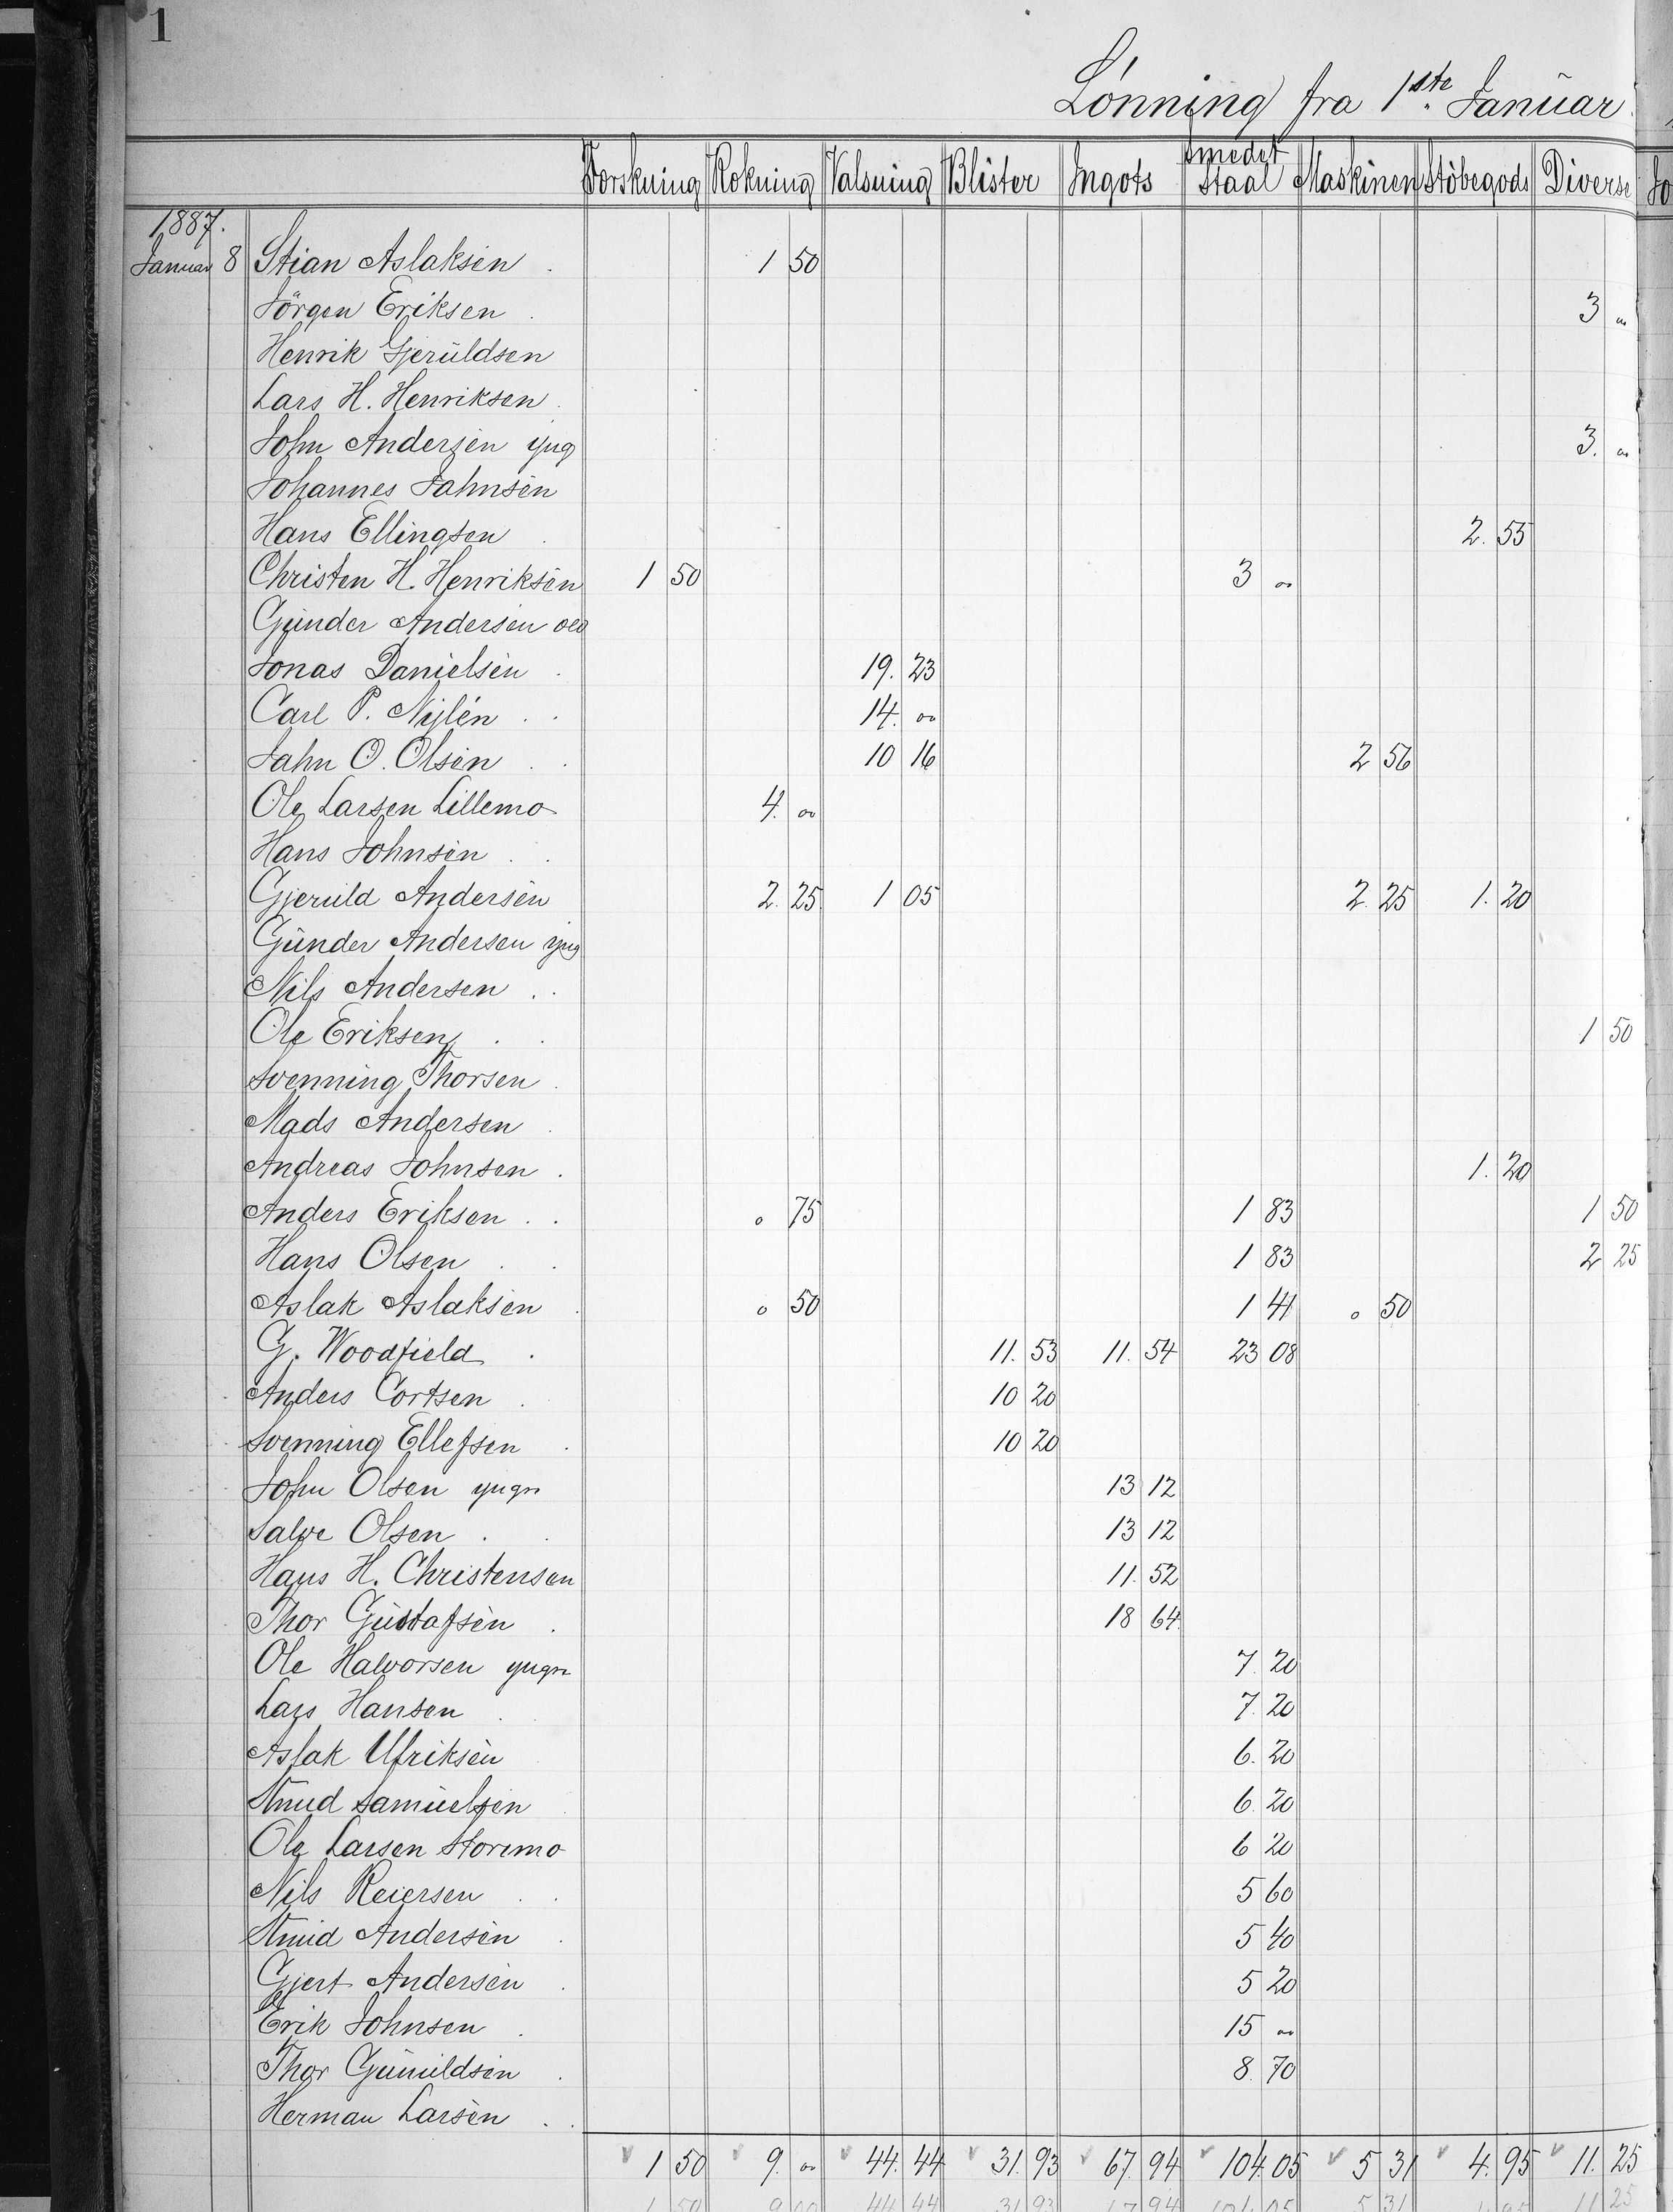 1
Lönning fra 1ste Januar
Forskning Rokning Valsning Blister Ingots smedet Staal Maskinen Stöbegods Diverse
1887.
Januar 8 Stian Aslaksen 1 50
Jörgen Eriksen 3 "
Henrik Gjerüldsen
Lars H. Henriksen
John Andersen yng
Johannes Jahnsen 3. "
Hans Ellingsen 2. 55
Christen H. Henriksen 1 50 3 "
Günder Andersen
Jonas Danielsen 19. 23
Carl P. Nylén 14. "
Jahn O. Olsen 10 16 2 56
Ole Larsen Lillemo 4. "
Hans Johnsen
Gjeruld Andersen 2. 25. 1 05 2. 25 1. 20
Günder Andersen yng
Nils Andersen
Ole Eriksen 1 50
Svenning Thorsen
Mads Andersen
Andreas Johnsen 1. 20
Anders Eriksen 0 75 1 83 1 50
Hans Olsen 1 83 2 25
Aslak Aslaksen 0 50 1 41 0 50
G. Woodfield 11. 53 11. 54 23 08
Anders Cortsen 10 20
Svenning Ellefsen 10 20
John Olsen yngr 13 12
Salve Olsen 13 12
Hans H. Christensen 11. 52
Thor Güstafsen 18 64.
Ole Halvorsen yngr 7. 20
Lars Hansen 7. 20
Aslak Ulriksen 6. 20
Knud Samüelsen 6. 20
Ole Larsen Storemo 6 20
Nils Reiersen 5 60
Knud Andersen 5 40
Gjert Andersen 5 20
Erik Johnsen 15 "
Thor Günüldsen 8. 70
Herman Larsen
1 50 9. " 44. 44 31. 93 67. 94 104. 05 5 31 4. 95 11. 25
1 50 9 00 44 44 31 93 67 94 104 05 5 31 4 95 11 25